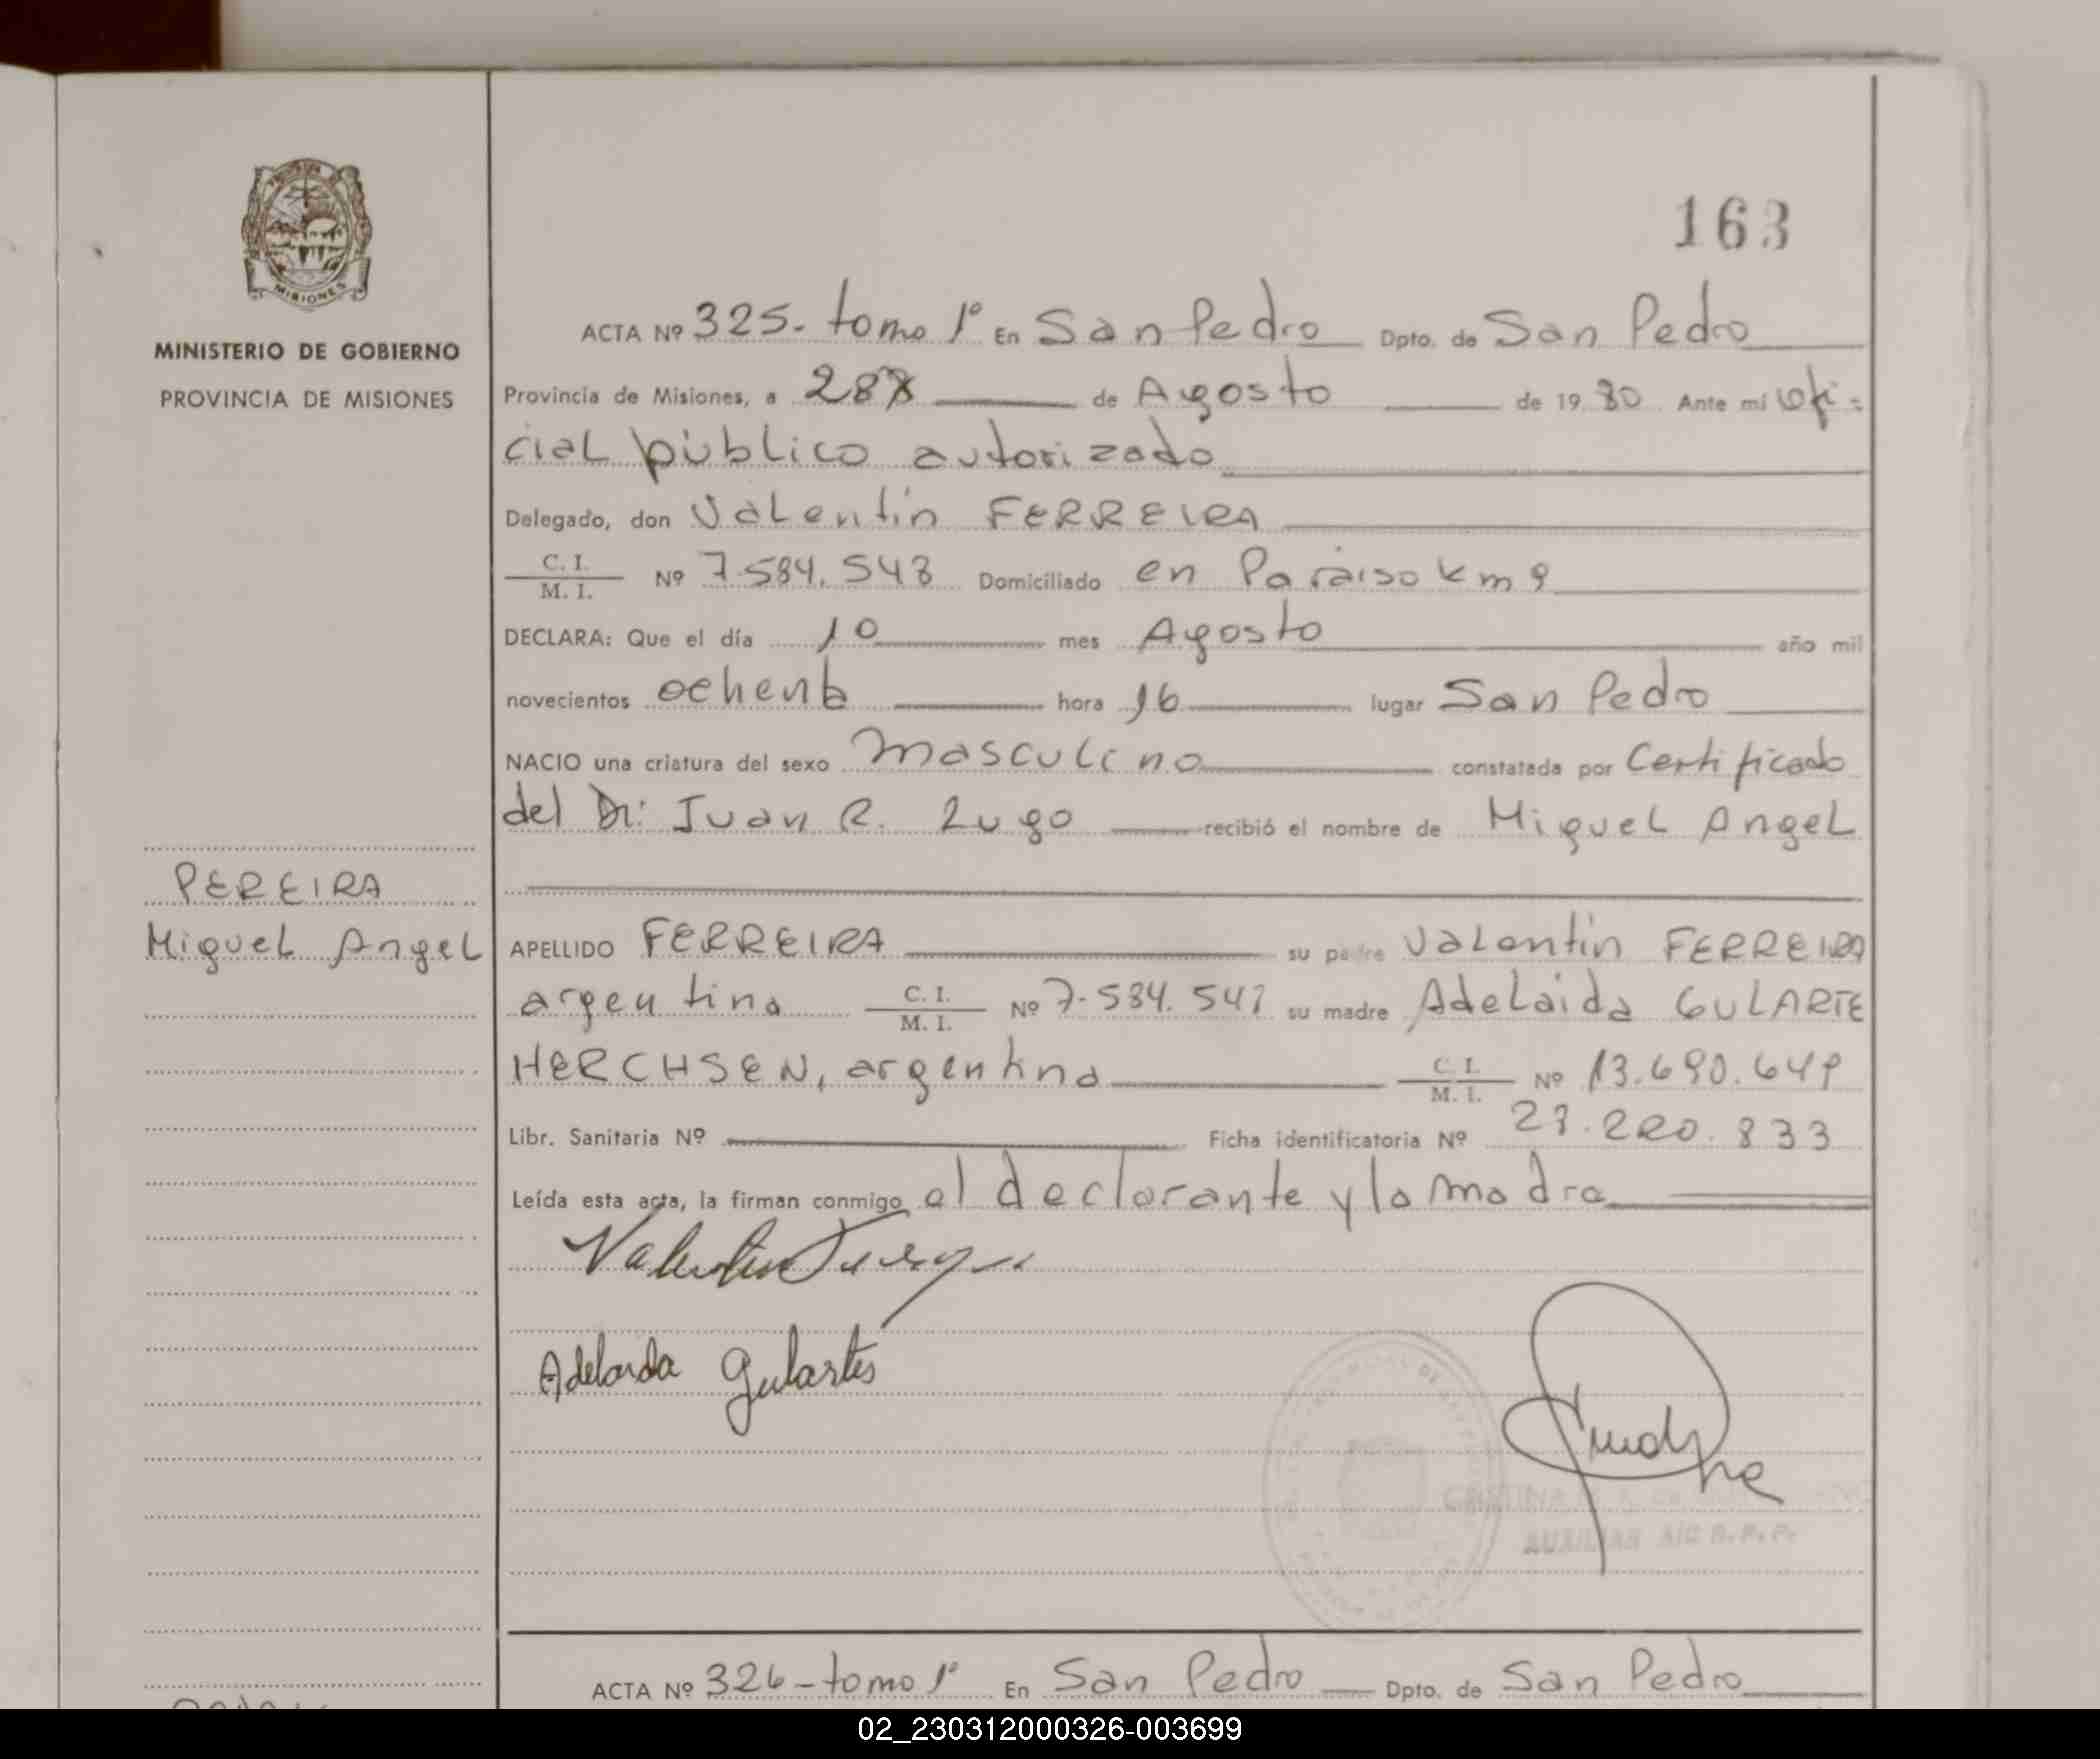 163
MISIONES
MINISTERIO DE GOBIERNO
PROVINCIA DE MISIONES
PEREIRA
Miguel Angel
ACTA Nº 325- tomo 1º En San Pedro Dpto. de San Pedro
Provincia de Misiones, a 28 de Agosto de 19 80 Ante mi ofi=
cial público autorizado
Delegado, don Valentín FERREIRA
C. I.
M. I. Nº 7.584.548 Domiciliado en Paraiso Km 9
DECLARA: Que el día 10 mes Agosto año mil
novecientos ochenta hora 16 lugar San Pedro
NACIO una criatura del sexo Masculino constatada por Certificado
del Dr: Juan R. Lugo recibió el nombre de Miguel Angel
APELLIDO FERREIRA su padre Valentín FERREIRA
argentino C. I.
M. I. Nº 7.584.541 su madre Adelaida GULARTE
HERCHSEN, argentina C. I.
M. I. Nº 13.690.649
Libr. Sanitaria Nº Ficha identificatoria Nº 28.220.833
Leída esta acta, la firman conmigo el declarante y la madre
Valentin
Adelaida Gulartes
CRISTINA
AUXILIAR A/C R.P.P.
ACTA Nº 326-tomo 1º En San Pedro Dpto. de San Pedro
02_230312000326-003699